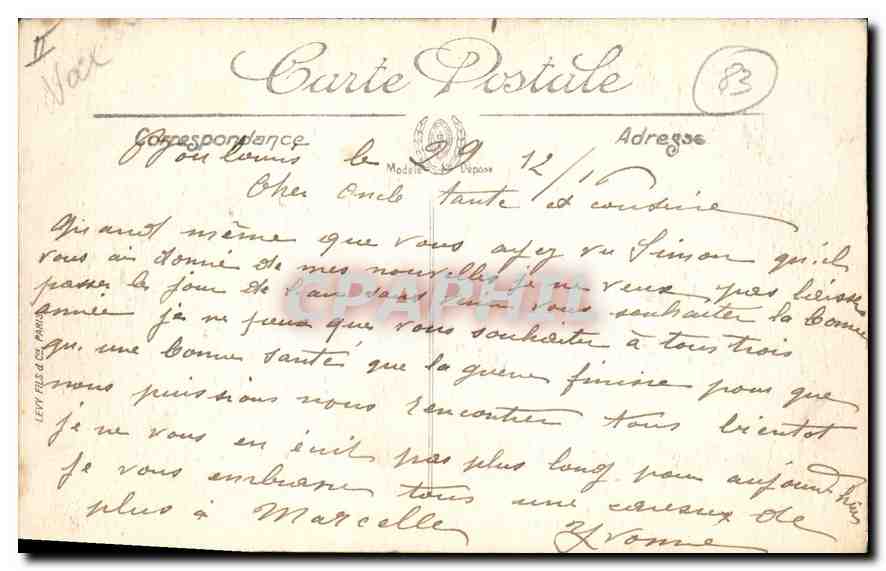 II
Var
Carte Postale
83
Correspondance
Adresse
Modèle Déposé
le 29 12/1
Cher Oncle tante et cousine
Quand même que vous ayez vu Simon qu'il
vous ai donné de mes nouvelles je ne veux pas laisser
passer le jour de l'an sans venir vous souhaiter la bonne
année je ne peux que vous souhaiter à tous trois
qu'une bonne santé que la guerre finisse pour que
nous puissions nous rencontrer tous bientot
je ne vous en écrit pas plus long pour aujourd'hui
Je vous embrasse tous une caresse de
plus à Marcelle
Yvonne
LEVY FILS & Cie, PARIS
CPAPHIL